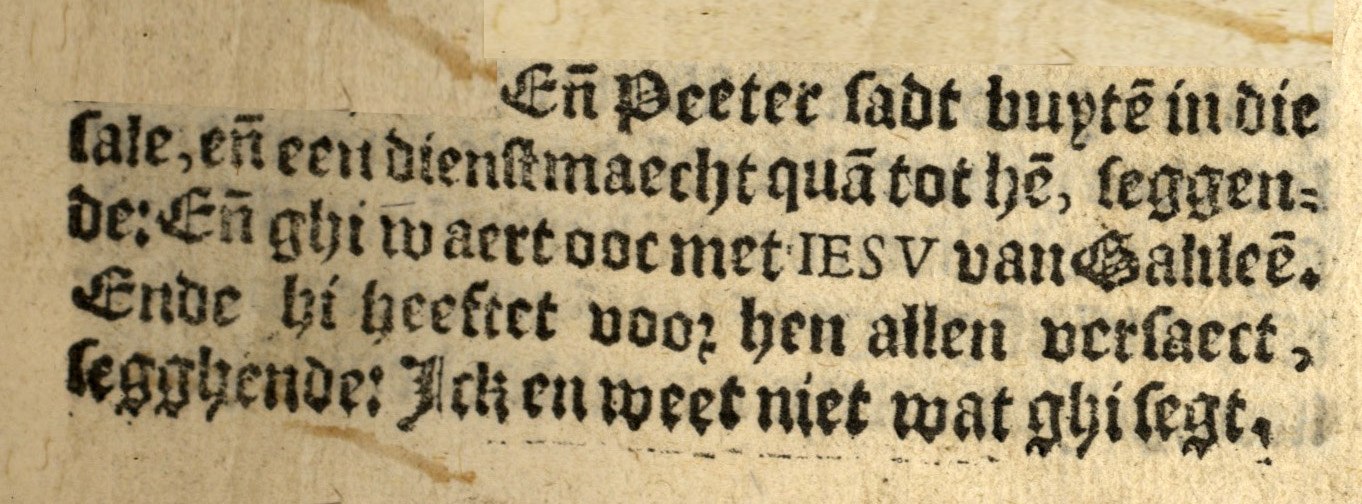 Eñ Peeter ſadt buytē in die
ſale, eñ een dienſtmaecht quā tot hē, ſeggen⸗
de: Eñ ghi waert ooc met IESV van Galileē.
Ende hi heeftet vooꝛ hen allen verſaect,
ſegghende: Ick en weet niet wat ghi ſegt,